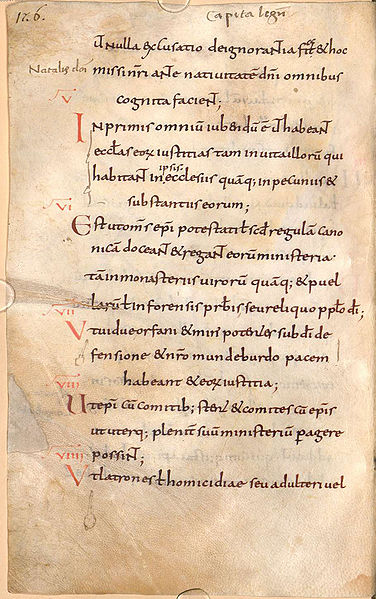 176. Capita legū
ut nulla excusatio deignorantia fiat & hoc
Natalis dñi missi nr̄i ante nativitatē dñi omnibus
cognita facient;
V
Inprimis omniū iubendū ē ut habeant
eccl̄as eorū iustitias tam in vita illorū qui
habitant in ipsis ecclesiis quāq; in pecuniis &
substantiis eorum;
VI
Est uto m̄s ep̄i potestatē scd̄ regulā cano
nicā doceant & regant eorū ministeria
tā in monasteriis virorū quāq; & puel
larū ł in forensis pr̄bis seu reliquo pp̄lo dī;
VII
Ut viduę orfani & min; potentes sub dī de
fensione & nr̄o mundeburdo pacem
habeant & eorū iustitia;
VIII
Ut ep̄i cū comitib; stent & comites cū ep̄is
ut uterq; plenit̄ suū ministeriū pagere
possint;
VIIII
Ut latrones ł homicidiae seu adulteri vel